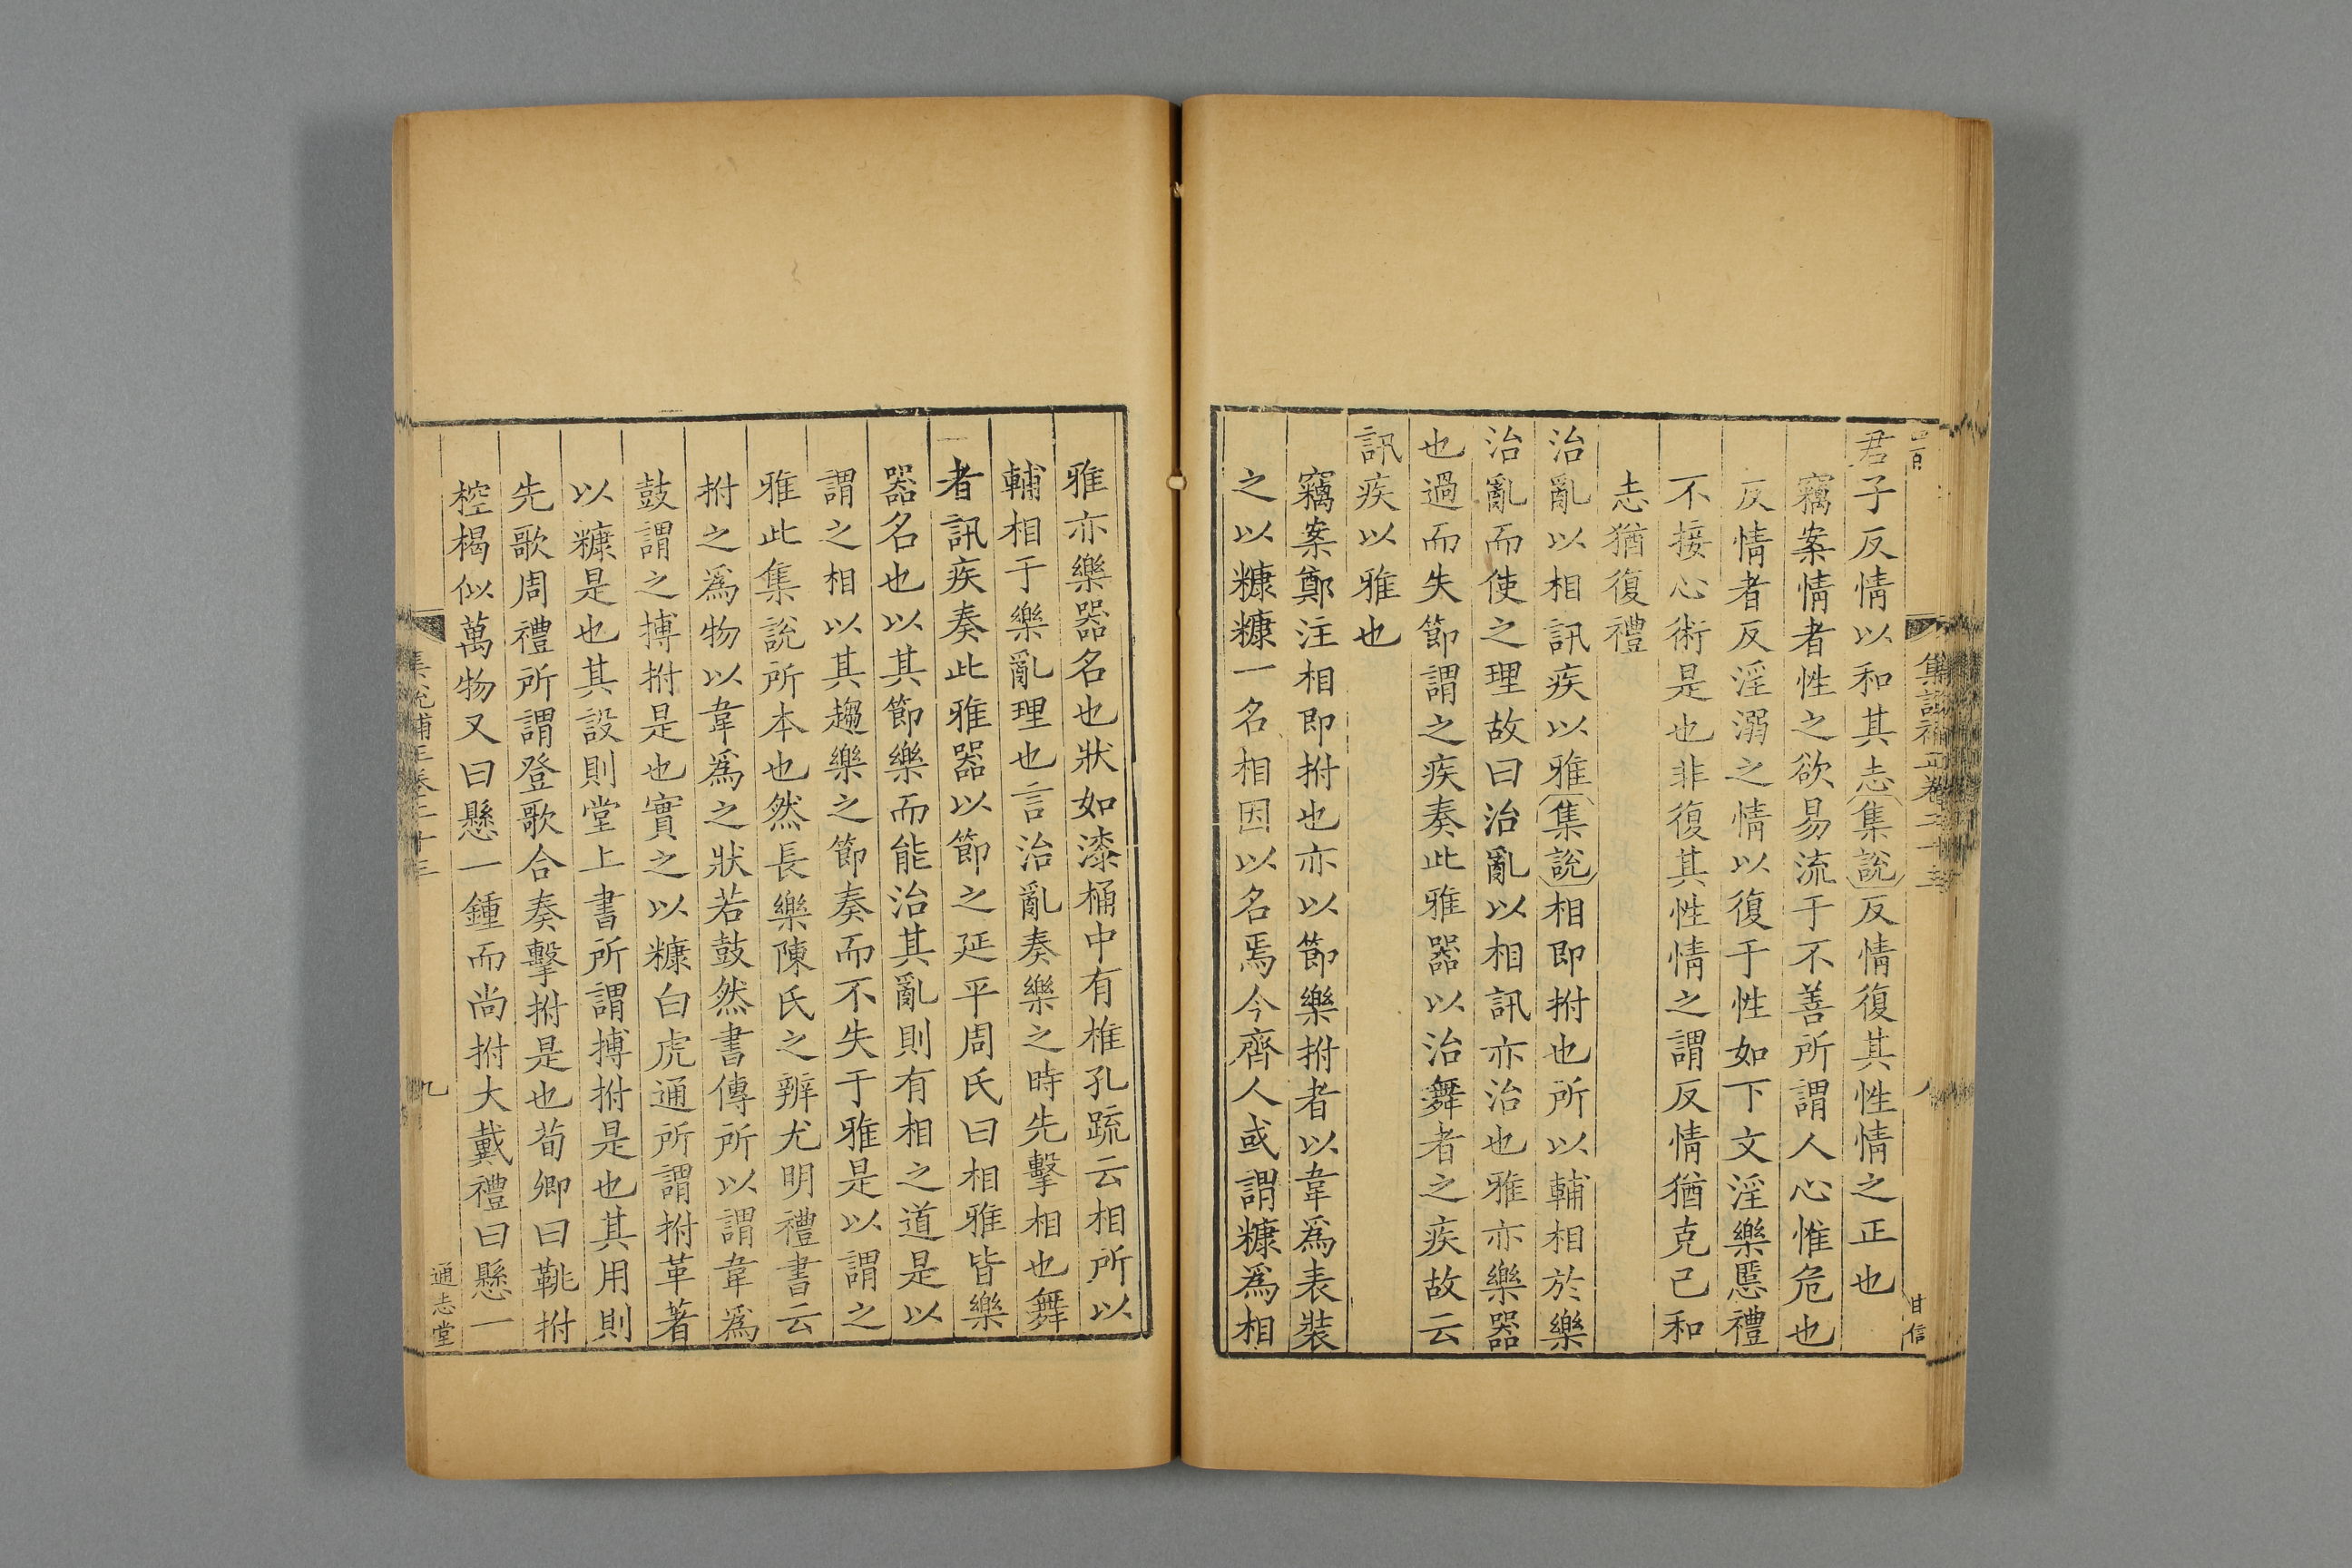 君子反情以和其志集說反情復其性情之正也
竊案情者性之欲易流于不善所謂人心惟危也
反情者反淫溺之情以復于性如下文淫樂慝禮
不接心術是也非復其性情之謂反情猶克己和
志猶復禮
治亂以相訊疾以雅集說相即拊也所以輔相於樂
治亂而使之理故曰治亂以相訊亦治也雅亦樂器
也過而失節謂之疾奏此雅器以治舞者之疾故云
訊疾以雅也
竊案鄭注相即拊也亦以節樂拊者以韋爲表裝
之以糠糠一名相因以名焉今齊人或謂糠爲相
集說補正卷二十三
八
甘信
雅亦樂器名也狀如漆桶中有椎孔疏云相所以
輔相于樂亂理也言治亂奏樂之時先擊相也舞
者訊疾奏此雅器以節之延平周氏曰相雅皆樂
器名也以其節樂而能治其亂則有相之道是以
謂之相以其趨樂之節奏而不失于雅是以謂之
雅此集說所本也然長樂陳氏之辨尤明禮書云
拊之爲物以韋爲之狀若鼓然書傳所以謂韋爲
鼓謂之搏拊是也實之以糠白虎通所謂拊革著
以糠是也其設則堂上書所謂搏拊是也其用則
先歌周禮所謂登歌合奏擊拊是也荀卿曰鞉拊
椌楬似萬物又曰懸一鍾而尚拊大戴禮曰懸一
集說補正卷二十三
九
通志堂